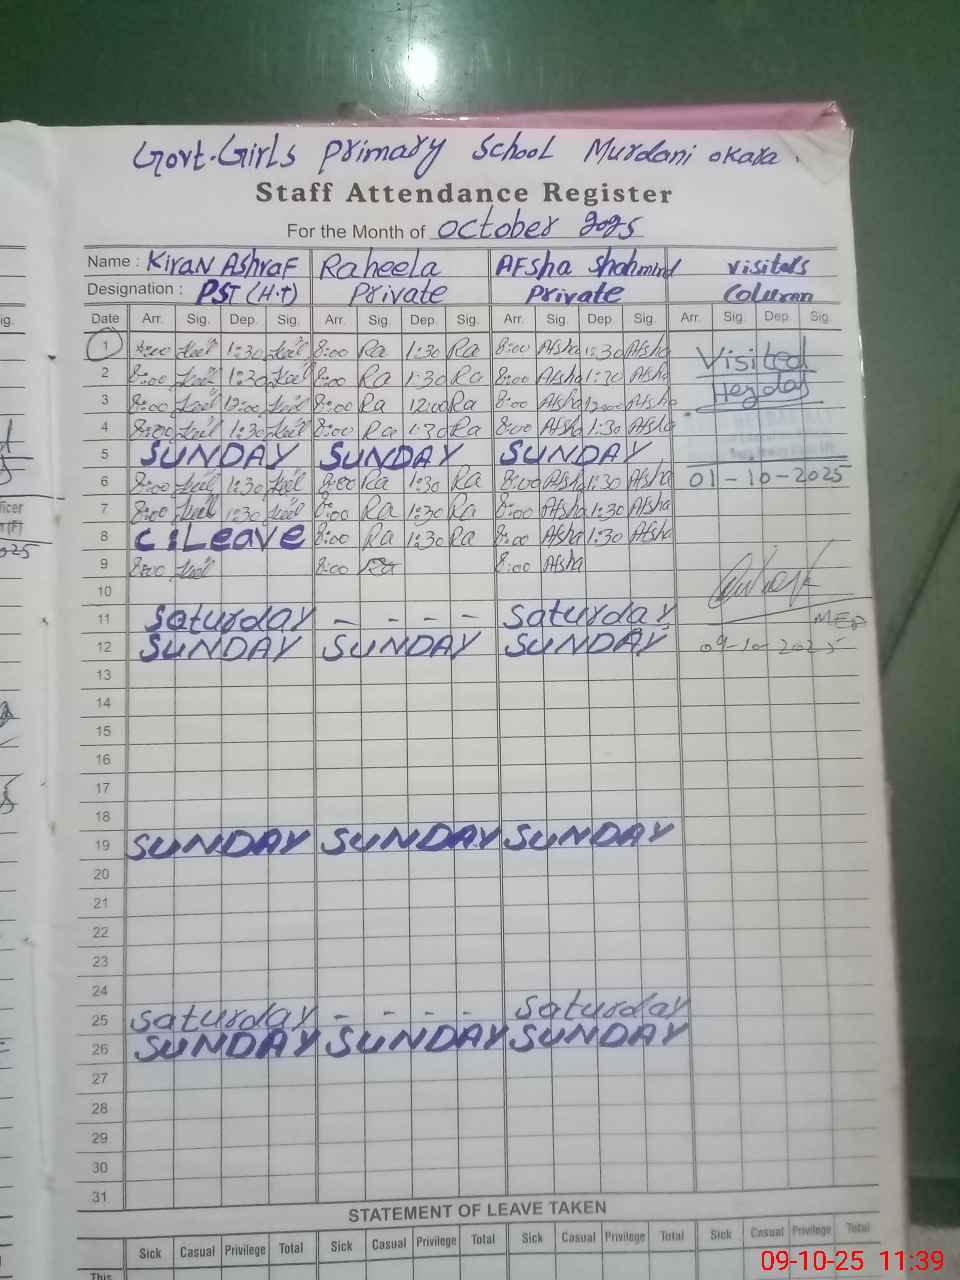 Govt. Girls Primary School Murdani okara
Staff Attendance Register
For the Month of October 2025
Name : Kiran Ashraf Raheela Afsha Shahmind Visitors
Designation : PST (H.T) Private Private Column
Date Arr. Sig. Dep. Sig. Arr. Sig. Dep. Sig. Arr. Sig. Dep. Sig. Arr. Sig. Dep. Sig.
1 8:00 1:30 8:00 Ra 1:30 Ra 8:00 Afsha 1:30 Afsha Visited
2 8:00 1:30 8:00 Ra 1:30 Ra 8:00 Afsha 1:30 Afsha
3 8:00 12:00 8:00 Ra 12:00 Ra 8:00 Afsha 12:00 Afsha
4 8:00 1:30 8:00 Ra 1:30 Ra 8:00 Afsha 1:30 Afsha
5 SUNDAY SUNDAY SUNDAY
6 8:00 1:30 8:00 Ra 1:30 Ra 8:00 Afsha 1:30 Afsha 01-10-2025
7 8:00 1:30 8:00 Ra 1:30 Ra 8:00 Afsha 1:30 Afsha
8 C:Leave 8:00 Ra 1:30 Ra 8:00 Afsha 1:30 Afsha
9 8:00 8:00 Ra 8:00 Afsha
10
11 Saturday - - - - Saturday MEA
12 SUNDAY SUNDAY SUNDAY 09-10-2025
13
14
15
16
17
18
19 SUNDAY SUNDAY SUNDAY
20
21
22
23
24
25 Saturday - - - - Saturday
26 SUNDAY SUNDAY SUNDAY
27
28
29
30
31
STATEMENT OF LEAVE TAKEN
Sick Casual Privilege Total Sick Casual Privilege Total Sick Casual Privilege Total Sick Casual Privilege Total
This
09-10-25 11:39